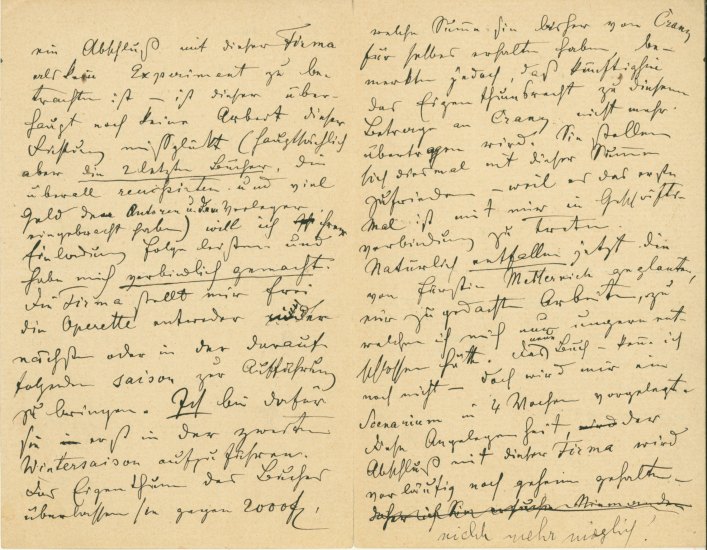 ein Abschluß mit dieser Firma
als kein Experiment zu be-
trachten ist – ist dieser über-
haupt noch keine Arbeit dieser
Richtung missglückt (hauptsächlich
aber die 2 letzten Bücher, die
überall reussirten und viel
Geld den Autoren u. dem Verleger
eingebracht haben) will ich ihrer
Einladung Folge leisten und
habe mich verbindlich gemacht.
Die Firma stellt mir frei
die Operette entweder in der
nächst oder in der darauf
folgenden Saison zur Aufführung
zu bringen. Ich bin dafür
sie – erst in der zweiten
Wintersaison aufzuführen.
Das Eigenthum des Buches
überlassen sie gegen 2000fl,
welche Summe sie bisher von Cranz
für selbes erhalten haben, be-
merkten jedoch, daß künftighin
das Eigenthumsrecht zu diesem
Betrage an Cranz nicht mehr
übertragen wird. Sie stellen
sich diesmal mit dieser Summe
zufrieden – weil es das erste
Mal ist mit mir in Geschäfts-
verbindung zu treten.
Natürlich entfallen jetzt die
von Fürstin Metternich geplanten,
mir zugedacht Arbeiten, zu
welchen ich mich nur ungern ent-
schlossen hätte. Das neue Buch – kenne ich
noch nicht – doch wird mir ein
Scenarium in 4 Wochen vorgelegt.
Diese Angelegenheit, der
Abschluß mit dieser Firma wird
vorläufig noch geheim gehalten –
daher ich Sie ersuche Niemanden
nicht mehr möglich!